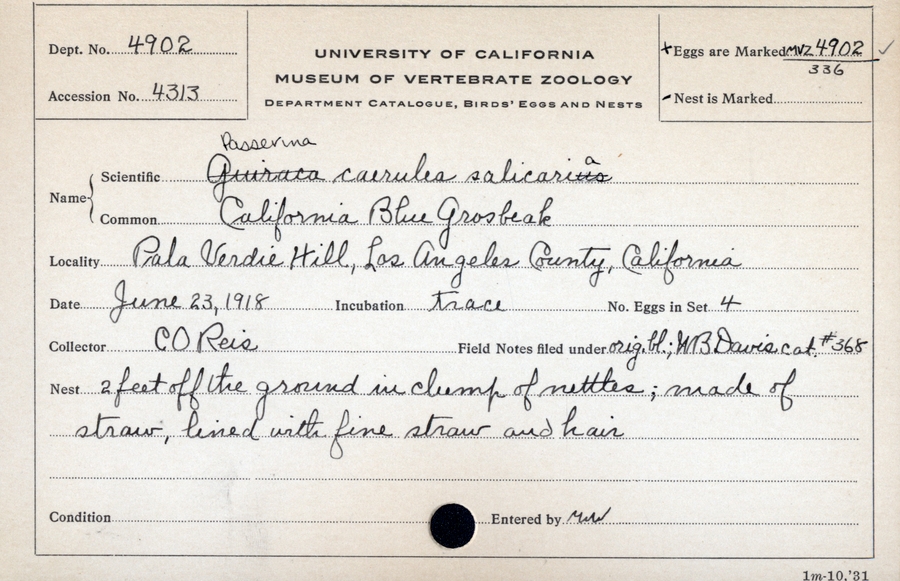 Dept. No. 4902
Accession No. 4313
UNIVERSITY OF CALIFORNIA
MUSEUM OF VERTEBRATE ZOOLOGY
DEPARTMENT CATALOGUE, BIRDS' EGGS AND NESTS
+ Eggs are Marked MVZ 4902 ✓
336
- Nest is Marked
Passerina
Name { Scientific Guiraca caerulea salicarius a
Common California Blue Grosbeak
Locality Pala Verdie Hill, Los Angeles County, California
Date June 23, 1918 Incubation trace No. Eggs in Set 4
Collector CO Reis Field Notes filed under orig. bl.; WB Davis cat. #368
Nest 2 feet off the ground in clump of nettles; made of
straw, lined with fine straw and hair
Condition Entered by
1m-10,'31